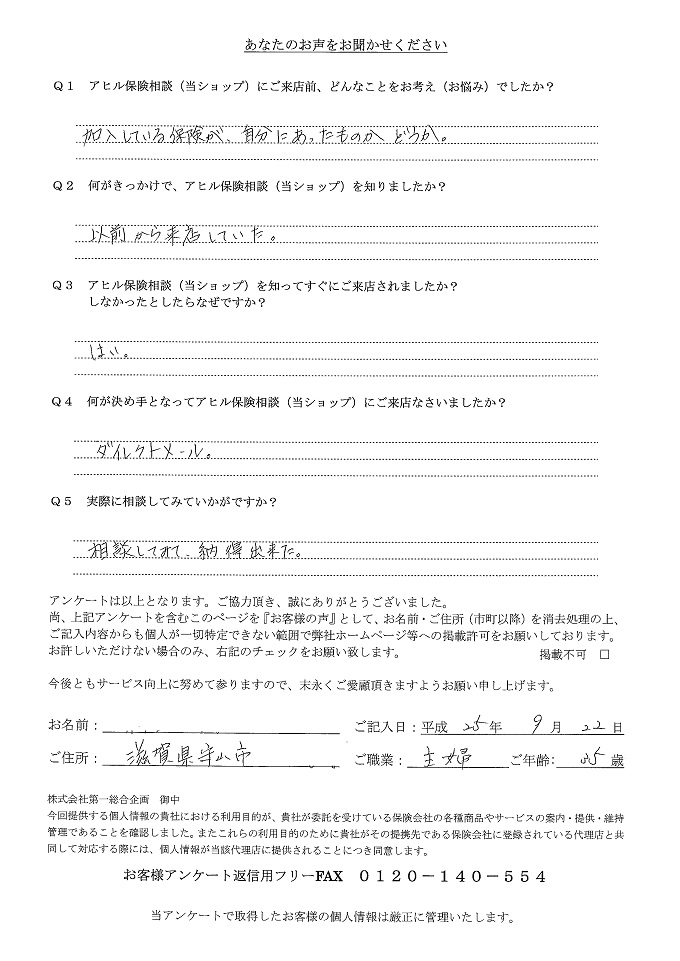 あなたのお声をお聞かせください
Q1 アヒル保険相談（当ショップ）にご来店前、どんなことをお考え（お悩み）でしたか？
加入している保険が、自分にあったものかどうか。
Q2 何がきっかけで、アヒル保険相談（当ショップ）を知りましたか？
以前から来店していた。
Q3 アヒル保険相談（当ショップ）を知ってすぐにご来店されましたか？
しなかったとしたらなぜですか？
はい。
Q4 何が決め手となってアヒル保険相談（当ショップ）にご来店なさいましたか？
ダイレクトメール。
Q5 実際に相談してみていかがですか？
相談してみて、納得出来た。
アンケートは以上となります。ご協力頂き、誠にありがとうございました。
尚、上記アンケートを含むこのページを『お客様の声』として、お名前・ご住所（市町以降）を消去処理の上、
ご記入内容からも個人が一切特定できない範囲で弊社ホームページ等への掲載許可をお願いしております。
お許しいただけない場合のみ、右記のチェックをお願い致します。 掲載不可 □
今後ともサービス向上に努めて参りますので、末永くご愛顧頂きますようお願い申し上げます。
お名前： ご記入日：平成 25年 9月 22日
ご住所： 滋賀県守山市 ご職業： 主婦 ご年齢： 35歳
株式会社第一総合企画 御中
今回提供する個人情報の貴社における利用目的が、貴社が委託を受けている保険会社の各種商品やサービスの案内・提供・維持
管理であることを確認しました。またこれらの利用目的のために貴社がその提携先である保険会社に登録されている代理店と共
同して対応する際には、個人情報が当該代理店に提供されることにつき同意します。
お客様アンケート返信用フリーFAX 0120－140－554
当アンケートで取得したお客様の個人情報は厳正に管理いたします。